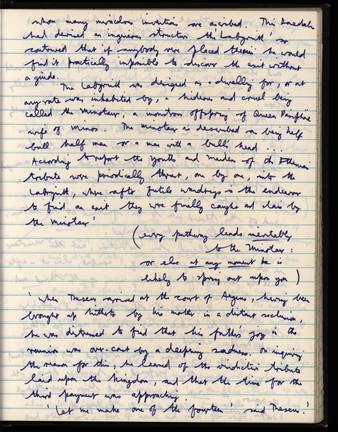 whom many marvellous inventions are ascribed. This Daedalus
had devised an ingenious structure, the 'Labyrinth', so
contrived that if anybody were placed therein he would
find it practically impossible to discover the exit without
a guide.
The Labyrinth was designed as a dwelling for, or at
any rate was inhabited by, a hideous and cruel being
called the Minotaur, a monstrous offspring of Queen Pasiphae
wife of Minos. The Minotaur is described as being half
bull half man or a man with a bull's head ...
According to report the youths and maidens of the Athenian
tribute were periodically thrust, one by one, into the
Labyrinth, where after futile wanderings in the endeavour
to find an exit they were finally caught and slain by
the Minotaur'
(every pathway leads inevitably
to the Minotaur
or else at any moment he is
likely to spring out upon you)
'When Theseus arrived at the court of Aegeus, having been
brought up hitherto by his mother in a distant seclusion,
he was distressed to find that his father's joy in the
reunion was over-cast by a deepening sadness. On inquiring
the reason for this, he learned of the vindictive tribute
laid upon the kingdom, and that the time for the
third payment was approaching.
'Let me make one of the fourteen' said Theseus.'